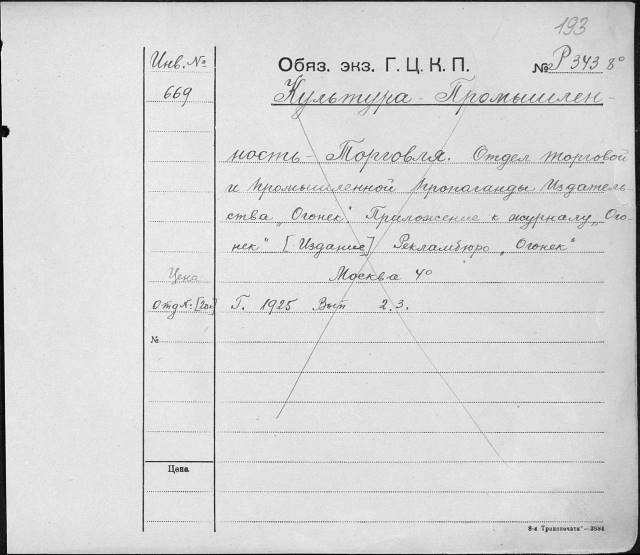 193
Инв. №
Обяз. экз. Г. Ц. К. П. № Р 343 8°
669
Культура - Промышлен-
ность - Торговля. Отдел торговой
и промышленной пропаганды Издатель-
ства „Огонек" Приложение к журналу „Ого
нек" [Издание] Рекламбюро „Огонек"
Цена
Москва 4°
Отд №: [20к]
Г. 1925 Вып 2.3.
№
Цена
8-я Транспечати"—3884